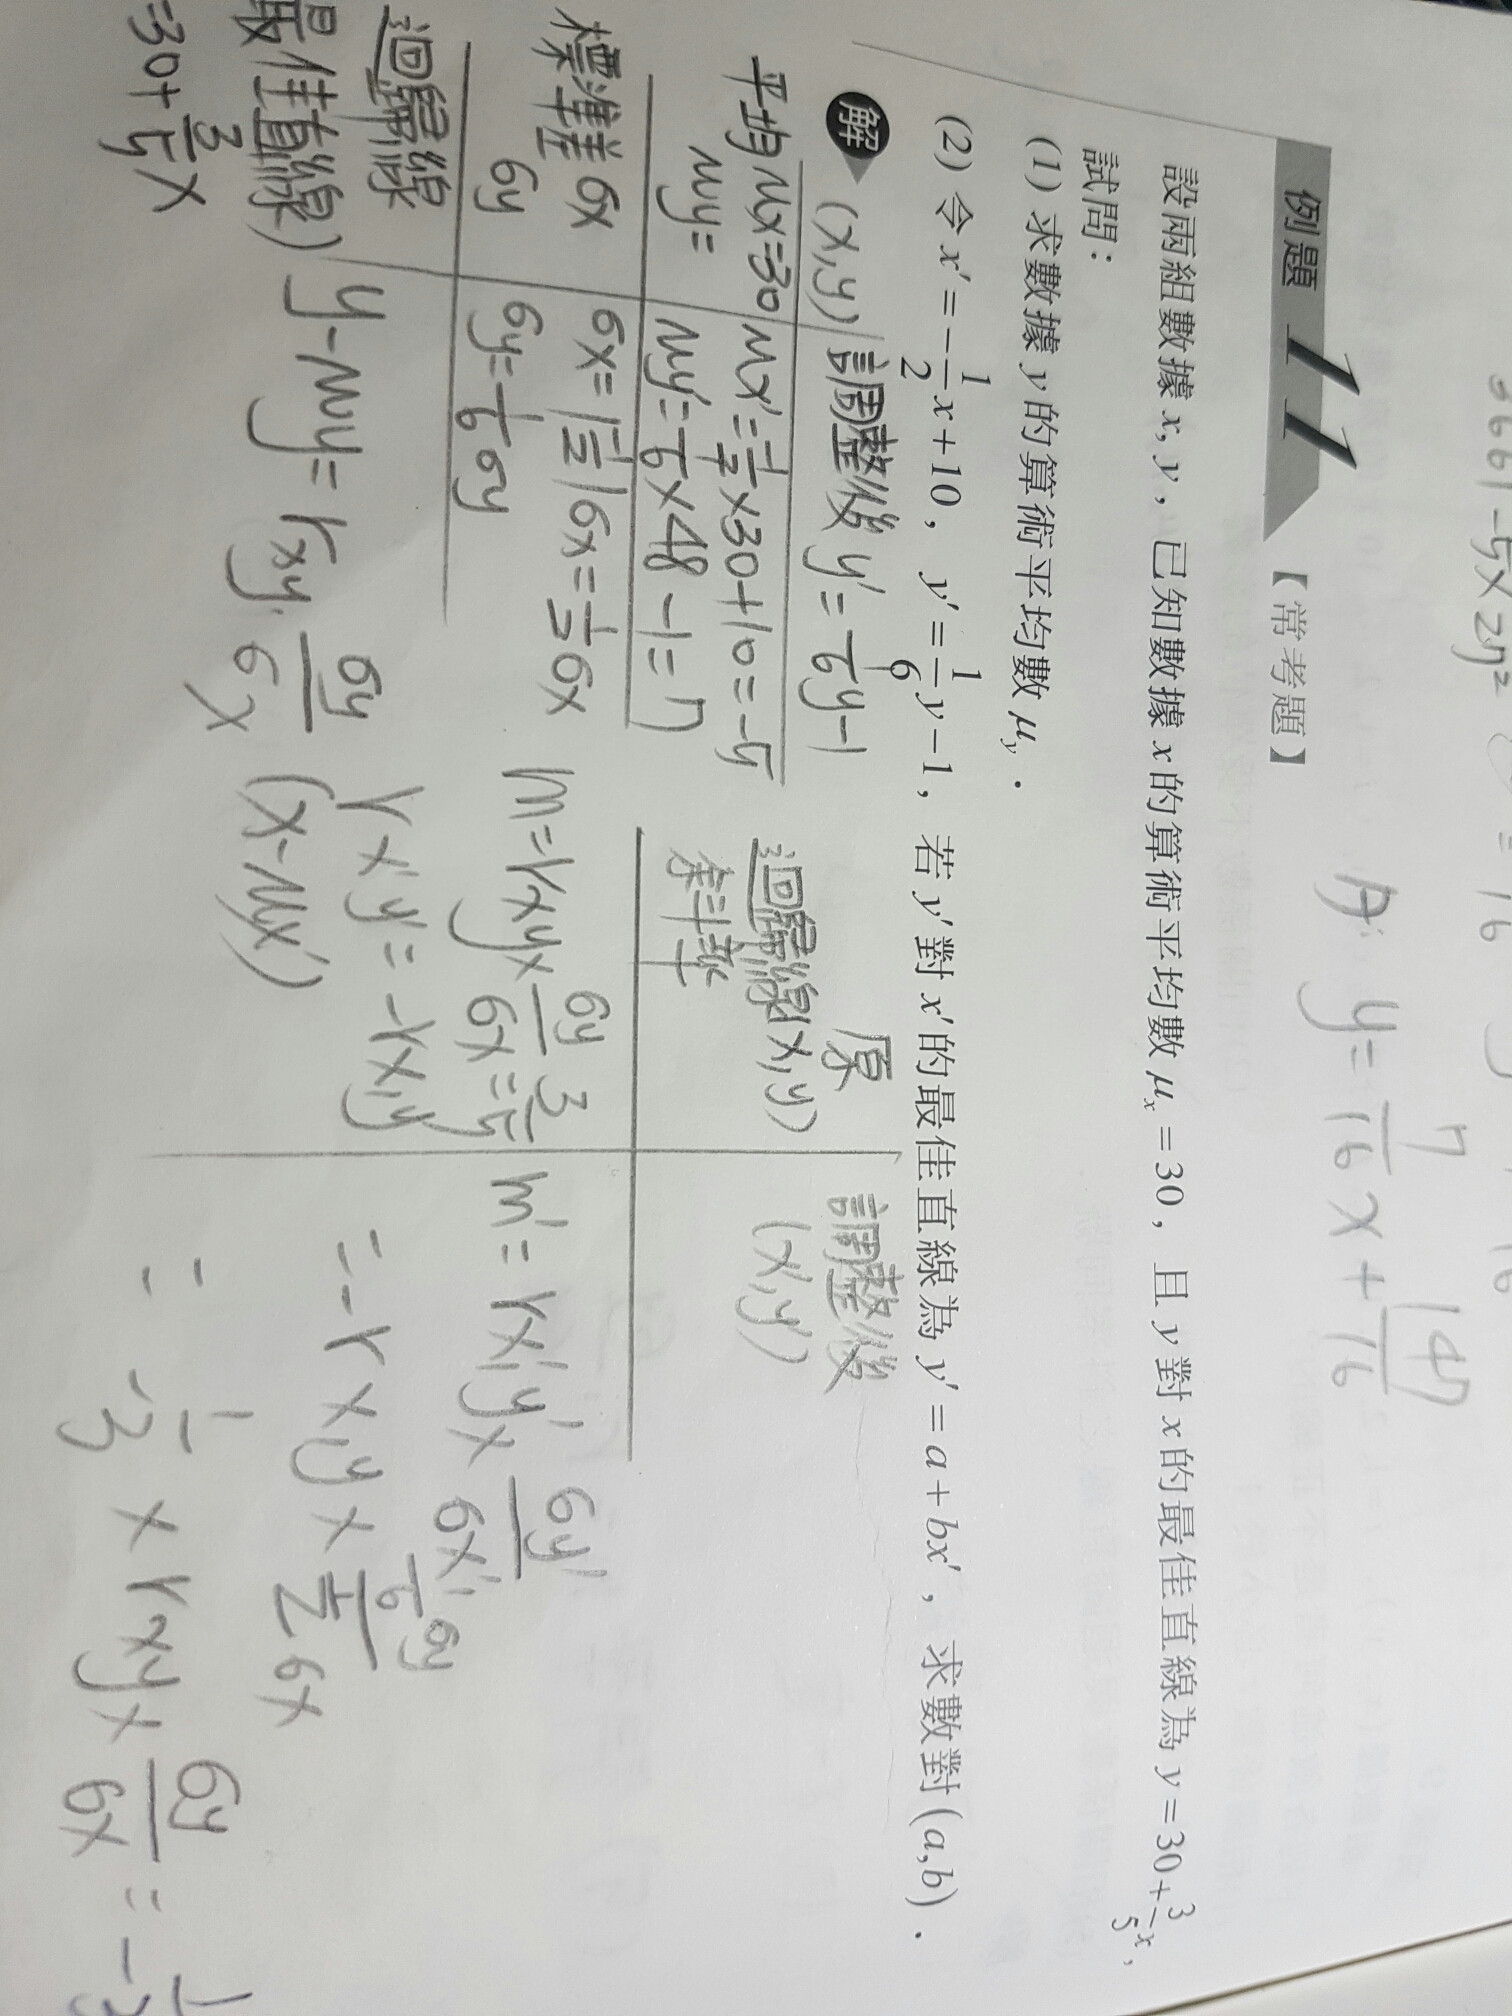 3661-5×27²
= 16
A: y = 7/16 x + 147/16
例題 11 【常考題】
設兩組數據 x, y，已知數據 x 的算術平均數 μx = 30，且 y 對 x 的最佳直線為 y = 30 + 3/5 x，
試問：
(1) 求數據 y 的算術平均數 μy．
(2) 令 x' = -1/2 x + 10，y' = 1/6 y - 1，若 y' 對 x' 的最佳直線為 y' = a + bx'，求數對 (a,b)．
解
(x,y) 調整後 y' = 1/6 y - 1
平均 μx = 30 μx' = -1/2 × 30 + 10 = -5
μy = μy' = 1/6 × 48 - 1 = 7
標準差 σx σx = |-1/2| σx = 1/2 σx
σy σy = 1/6 σy
迴歸線
最佳直線) y - μy = rxy · σy/σx (x - μx')
= 30 + 3/5 x
原 調整後
迴歸線(x,y) (x',y')
斜率
m = rxy × σy/σx = 3/5 m' = rx'y' × σy'/σx'
rx'y' = -rx,y = -rx,y × 1/6 σy / 1/2 σx
= -1/3 × rxy × σy/σx = -1